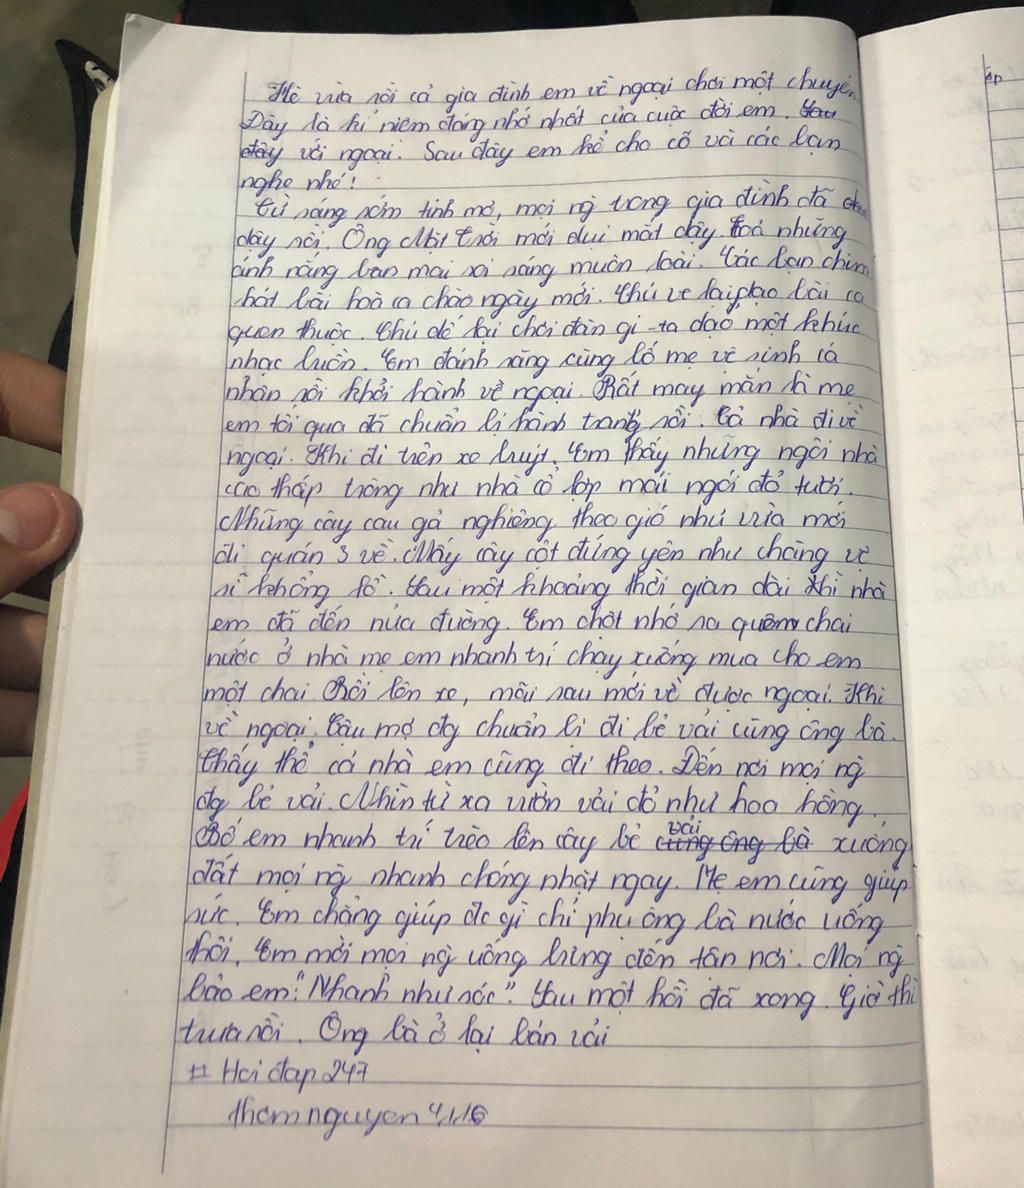 Hè vừa rồi cả gia đình em về ngoại chơi một chuyến
Đây là kỉ niệm đáng nhớ nhất của cuộc đời em. Sau
đây với ngoại. Sau đây em kể cho cô và các bạn
nghe nhé!
Từ sáng sớm tinh mơ, mọi ng trong gia đình đã
dậy rồi. Ông Mặt Trời mới dụi mắt dậy toả những
ánh nắng ban mai soi sáng muôn loài. Các bạn chim
hát bài hoà ca chào ngày mới. Chú ve lại dạo bài ca
quen thuộc. Chú dế lại chơi đàn gi-ta dạo một khúc
nhạc buồn. Em đánh răng cùng bố mẹ vệ sinh cá
nhân rồi khởi hành về ngoại. Rất may mắn là mẹ
em tối qua đã chuẩn bị hành trang rồi. Cả nhà đi về
ngoại. Khi đi trên xe buýt, Em thấy những ngôi nhà
cao thấp trông như nhà cổ lợp mái ngói đỏ tươi.
Những cây cau gả nghiêng theo gió như vừa mới
đi quán 3 về. Mấy cây cột đứng yên như chàng vệ
sĩ khổng lồ. Sau một khoảng thời gian dài thì nhà
em đã đến nửa đường. Em chợt nhớ ra quên chai
nước ở nhà mẹ em nhanh trí chạy xuống mua cho em
một chai Rồi lên xe, mãi sau mới về được ngoại. Khi
về ngoại. Cậu mợ đg chuẩn bị đi bẻ vải cùng ông bà.
Thấy thế cả nhà em cũng đi theo. Đến nơi mọi ng
đg bẻ vải. Nhìn từ xa vườn vải đỏ như hoa hồng.
Bố em nhanh trí trèo lên cây bẻ cùng ông bà vải xuống
đất mọi ng nhanh chóng nhặt ngay. Mẹ em cũng giúp
sức. Em chẳng giúp đc gì chỉ phụ ông bà nước uống
thôi. Em mời mọi ng uống bưng đến tận nơi. Mọi ng
bảo em: "Nhanh như sóc". Sau một hồi đã xong. Giờ thì
trưa rồi. Ông bà ở lại bán vải
# Hoi dap 247